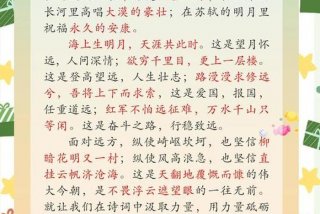 长河里高唱大漠的豪壮；在苏轼的明月里
祝福永久的安康。
海上生明月，天涯共此时。这是望月怀
远，人间深情；欲穷千里目，更上一层楼。
这是登高望远，人生壮志；路漫漫求修远
兮，吾将上下而求索，这是爱国，报国，
任重道远；红军不怕远征难，万水千山只
等闲。这是奋斗之路，行稳致远。
面对远方，纵使崎岖坎坷，也坚信柳
暗花明又一村；纵使风高浪急，也坚信直
挂云帆济沧海。这是天翻地覆慨而慷的伟
大今朝，是不畏浮云遮望眼的一往无前。
就让我们在诗词中汲取力量，用力量砥砺